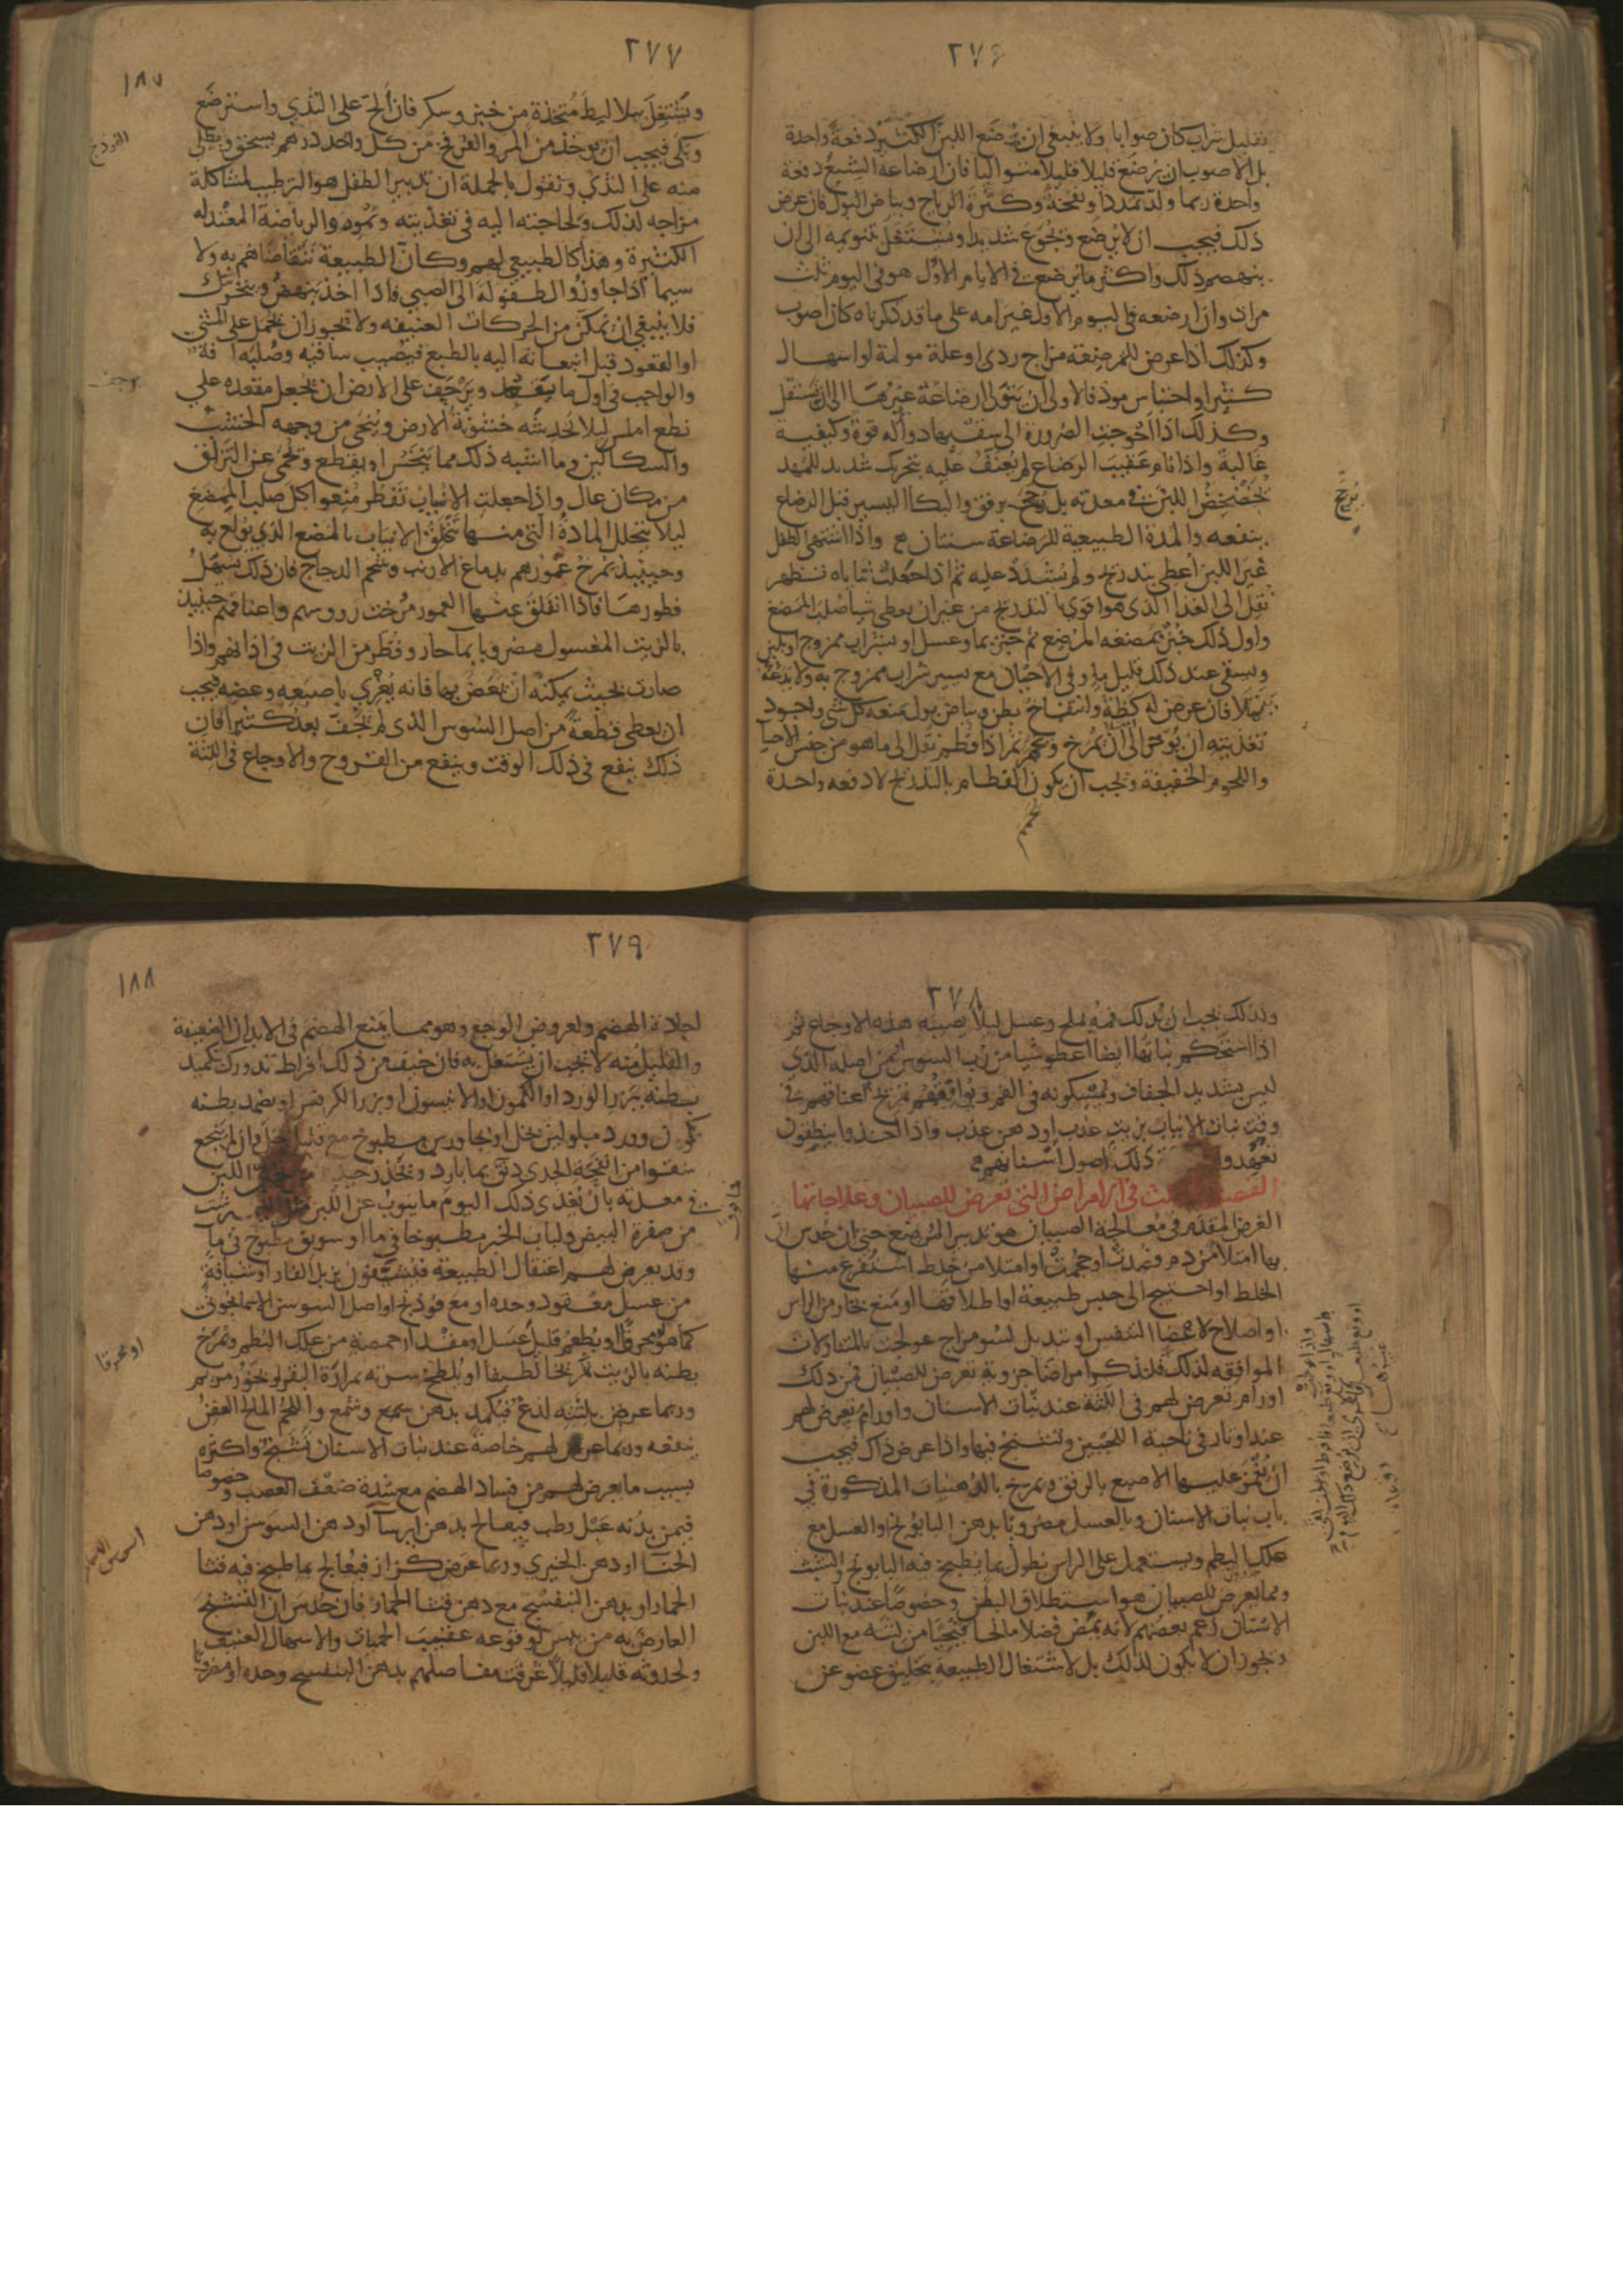 ٢٧٦
بقليل شراب كان صوابا ولا ينبغي ان يرضع اللبن الكثير دفعة واحدة
بل الاصوب ان يرضع قليلا قليلا متواليا فان ارضاعه الشبع دفعة
واحدة ربما ولد تمددا ونفخة وكثرة الرياح وبياض البول فان عرض
ذلك فيجب ان لا يرضع ويجوع شديدا ويشتغل بتنويمه الى ان
ينهضم ذلك واكثر ما يرضع في الايام الاول هو في اليوم ثلث
مرات وان ارضعه في اليوم الاول غير امه على ما قد ذكرناه كان اصوب
وكذلك اذا عرض للمرضعة مزاج ردى او علة مولمة او اسهال
كثير او احتباس موذ فالاولى ان يتولى ارضاعه غيرها الى ان يستقل
وكذلك اذا احوجت الضرورة الى سقيها دواء له قوة وكيفية
غالبة واذا نام عقيب الرضاع لم يعنف عليه بتحريك شديد للمهد
يخضخض اللبن في معدته بل يرجح برفق والبكا اليسير قبل الرضاع
ينفعه والمدة الطبيعية للرضاعة سنتان واذا اشتهى الطفل
غير اللبن اعطي بتدريج ولم يشدد عليه ثم اذا جعلت ثناياه تظهر
نقل الى الغذا الذي هو اقوى بالتدريج من غير ان يعطى شيا صلب الممضغ
واول ذلك خبز تمضغه المرضع ثم خبز بماء وعسل او بشراب ممزوج او بلبن
ويسقى عند ذلك قليل ماء وفي الاحيان مع يسير شراب ممزوج به ولا تدعه
يتملا فان عرض له كظة وانتفاخ بطن وبياض بول منعه كل شي واجود
تغذيته ان يوخر الى ان يمرخ ويحمم ثم اذا فطم نقل الى ما هو من جنس الاحسا
واللحوم الخفيفة ويجب ان يكون الفطام بالتدريج لا دفعة واحدة
٢٧٧
١٨٧
ويشتغل ببلاليط متخذة من خبز وسكر فان الح على الثدي واسترضع
وبكى فيجب ان يوخذ من المر والفوذنج من كل واحد درهم يسحق ويطلى
منه على الثدي ونقول بالجملة ان تدبير الطفل هو الترطيب لمشاكلة
مزاجه لذلك ولحاجته اليه في تغذيته ونموه والرياضة المعتدلة
الكثيرة وهذا كالطبيعي لهم وكان الطبيعة تتقاضاهم به ولا
سيما اذا جاوزوا الطفولة الى الصبي فاذا اخذ ينهض ويتحرك
فلا ينبغي ان يمكن من الحركات العنيفة ولا يجوز ان يحمل على المشي
او القعود قبل انبعاثه اليه بالطبع فيصيب ساقيه وصلبه افة
والواجب في اول ما يقعد ويزحف على الارض ان يجعل مقعده على
نطع املس ليلا تخدشه خشونة الارض وينحى من وجهه الخشب
والسكاكين وما اشبه ذلك مما ينخس او يقطع ويحمى عن التزلق
من مكان عال واذا جعلت الانياب تفطر منعوا كل صلب الممضغ
ليلا يتحلل المادة التي منها تتخلق الانياب بالمضغ الذي يولع به
وحينيذ تمرخ عمورهم بدماغ الارنب وشحم الدجاج فان ذلك يسهل
فطورها فاذا انفلق عنها العمور مرخت رووسهم واعناقهم حينيذ
بالزيت المغسول مضروبا بماء حار وقطر من الزيت في اذانهم واذا
صارت بحيث يمكنه ان يعض بها فانه يغري باصبعه وعضه فيجب
ان يعطى قطعة من اصل السوس الذي لم يجف بعد كثيرا فان
ذلك ينفع في ذلك الوقت وينفع من القروح والاوجاع في اللثة
٢٧٨
ولذلك يجب ان يدلك فمه بملح وعسل ليلا يصيبه هذه الاوجاع ثم
اذا استحكم نباتها ايضا اعطوا شيا من رب السوس او من اصله الذي
ليس بشديد الجفاف ويمسكونه في الفم ويوافقهم تمريخ اعناقهم في
وقت نبات الانياب بزيت عذب او دهن عذب واذا اخذوا ينطقون
تعهدوا ذلك اصول اسنانهم
الفصل الثالث في الامراض التي تعرض للصبيان وعلاجاتها
الغرض المقدم في معالجة الصبيان هو تدبير المرضع حتى ان حدس ان
بها امتلا من دم فصدت او حجمت او امتلا من خلط استفرغ منها
الخلط او احتيج الى حبس طبيعة او اطلاقها او منع بخار من الراس
او اصلاح لاعضا التنفس او تبديل لسو مزاج عولجت بالمتناولات
الموافقة لذلك فلنذكر امراضا جزوية تعرض للصبيان فمن ذلك
اورام تعرض لهم في اللثة عند نبات الاسنان واورام تعرض لهم
عند اوتار في ناحية اللحيين وتشنج فيها واذا عرض ذاك فيجب
ان يغمز عليها الاصبع بالرفق ويمرخ بالدهنيات المذكورة في
باب نبات الاسنان وبالعسل مضروبا بدهن البابونج او العسل مع
علك البطم ويستعمل على الراس نطول بما يطبخ فيه البابونج والشبث
ومما يعرض للصبيان هو استطلاق البطن وخصوصا عند نبات
الاسنان زعم بعضهم لانه يمص فضلا مالحا قيحيا من لثته مع اللبن
ويجوز ان لا يكون لذلك بل لاشتغال الطبيعة بتخليق عضو عن
٢٧٩
١٨٨
لجادة الهضم ولعروض الوجع وهو مما يمنع الهضم في الابدان الضعيفة
والقليل منه لا يجب ان يشتغل به فان خيف من ذلك افراط تدورك بتكميد
بطنه ببزر الورد او الكمون او الانيسون او بزر الكرفس او يضمد بطنه
بكمون وورد مبلولين بخل او بجاورس مطبوخ مع قليل خل وان لم ينجع
سقوا من انفحة الجدي دانق بماء بارد ويحذر حينيذ اللبن
في معدته بان يغذى ذلك اليوم ما ينوب عن اللبن مثل النيمرشت
من صفرة البيض ولباب الخبز مطبوخا في ما او سويق مطبوخ في ما
وقد يعرض لهم اعتقال الطبيعة فيشيفون بزبل الفار او شيافة
من عسل معقود وحده او مع فوذنج او اصل السوسن الاسمانجوني
كما هو محرقا او يطعم قليل عسل او مقدار حمصة من علك البطم ويمرخ
بطنه بالزيت تمريخا لطيفا او يلطخ سرته بمرارة البقر وبخور مريم
وربما عرض بلثته لذع فيكمد بدهن وشمع واللحم المالح العفن
ينفعه وربما عرض لهم خاصة عند نبات الاسنان تشنج واكثره
بسبب ما يعرض لهم من فساد الهضم مع شدة ضعف العصب وخصوصا
فيمن بدنه عبل رطب فيعالج بدهن ايرسا او دهن السوسن او دهن
الحنا او دهن الخيري وربما عرض كزاز فيعالج بما طبخ فيه قثا
الحمار او بدهن البنفسج مع دهن قثا الحمار فان حدس ان التشنج
العارض به من يبس لوقوعه عقيب الحميات والاسهال العنيف
ولحدوثه قليلا قليلا عرقت مفاصلهم بدهن البنفسج وحده او مضروبا
او محرقا